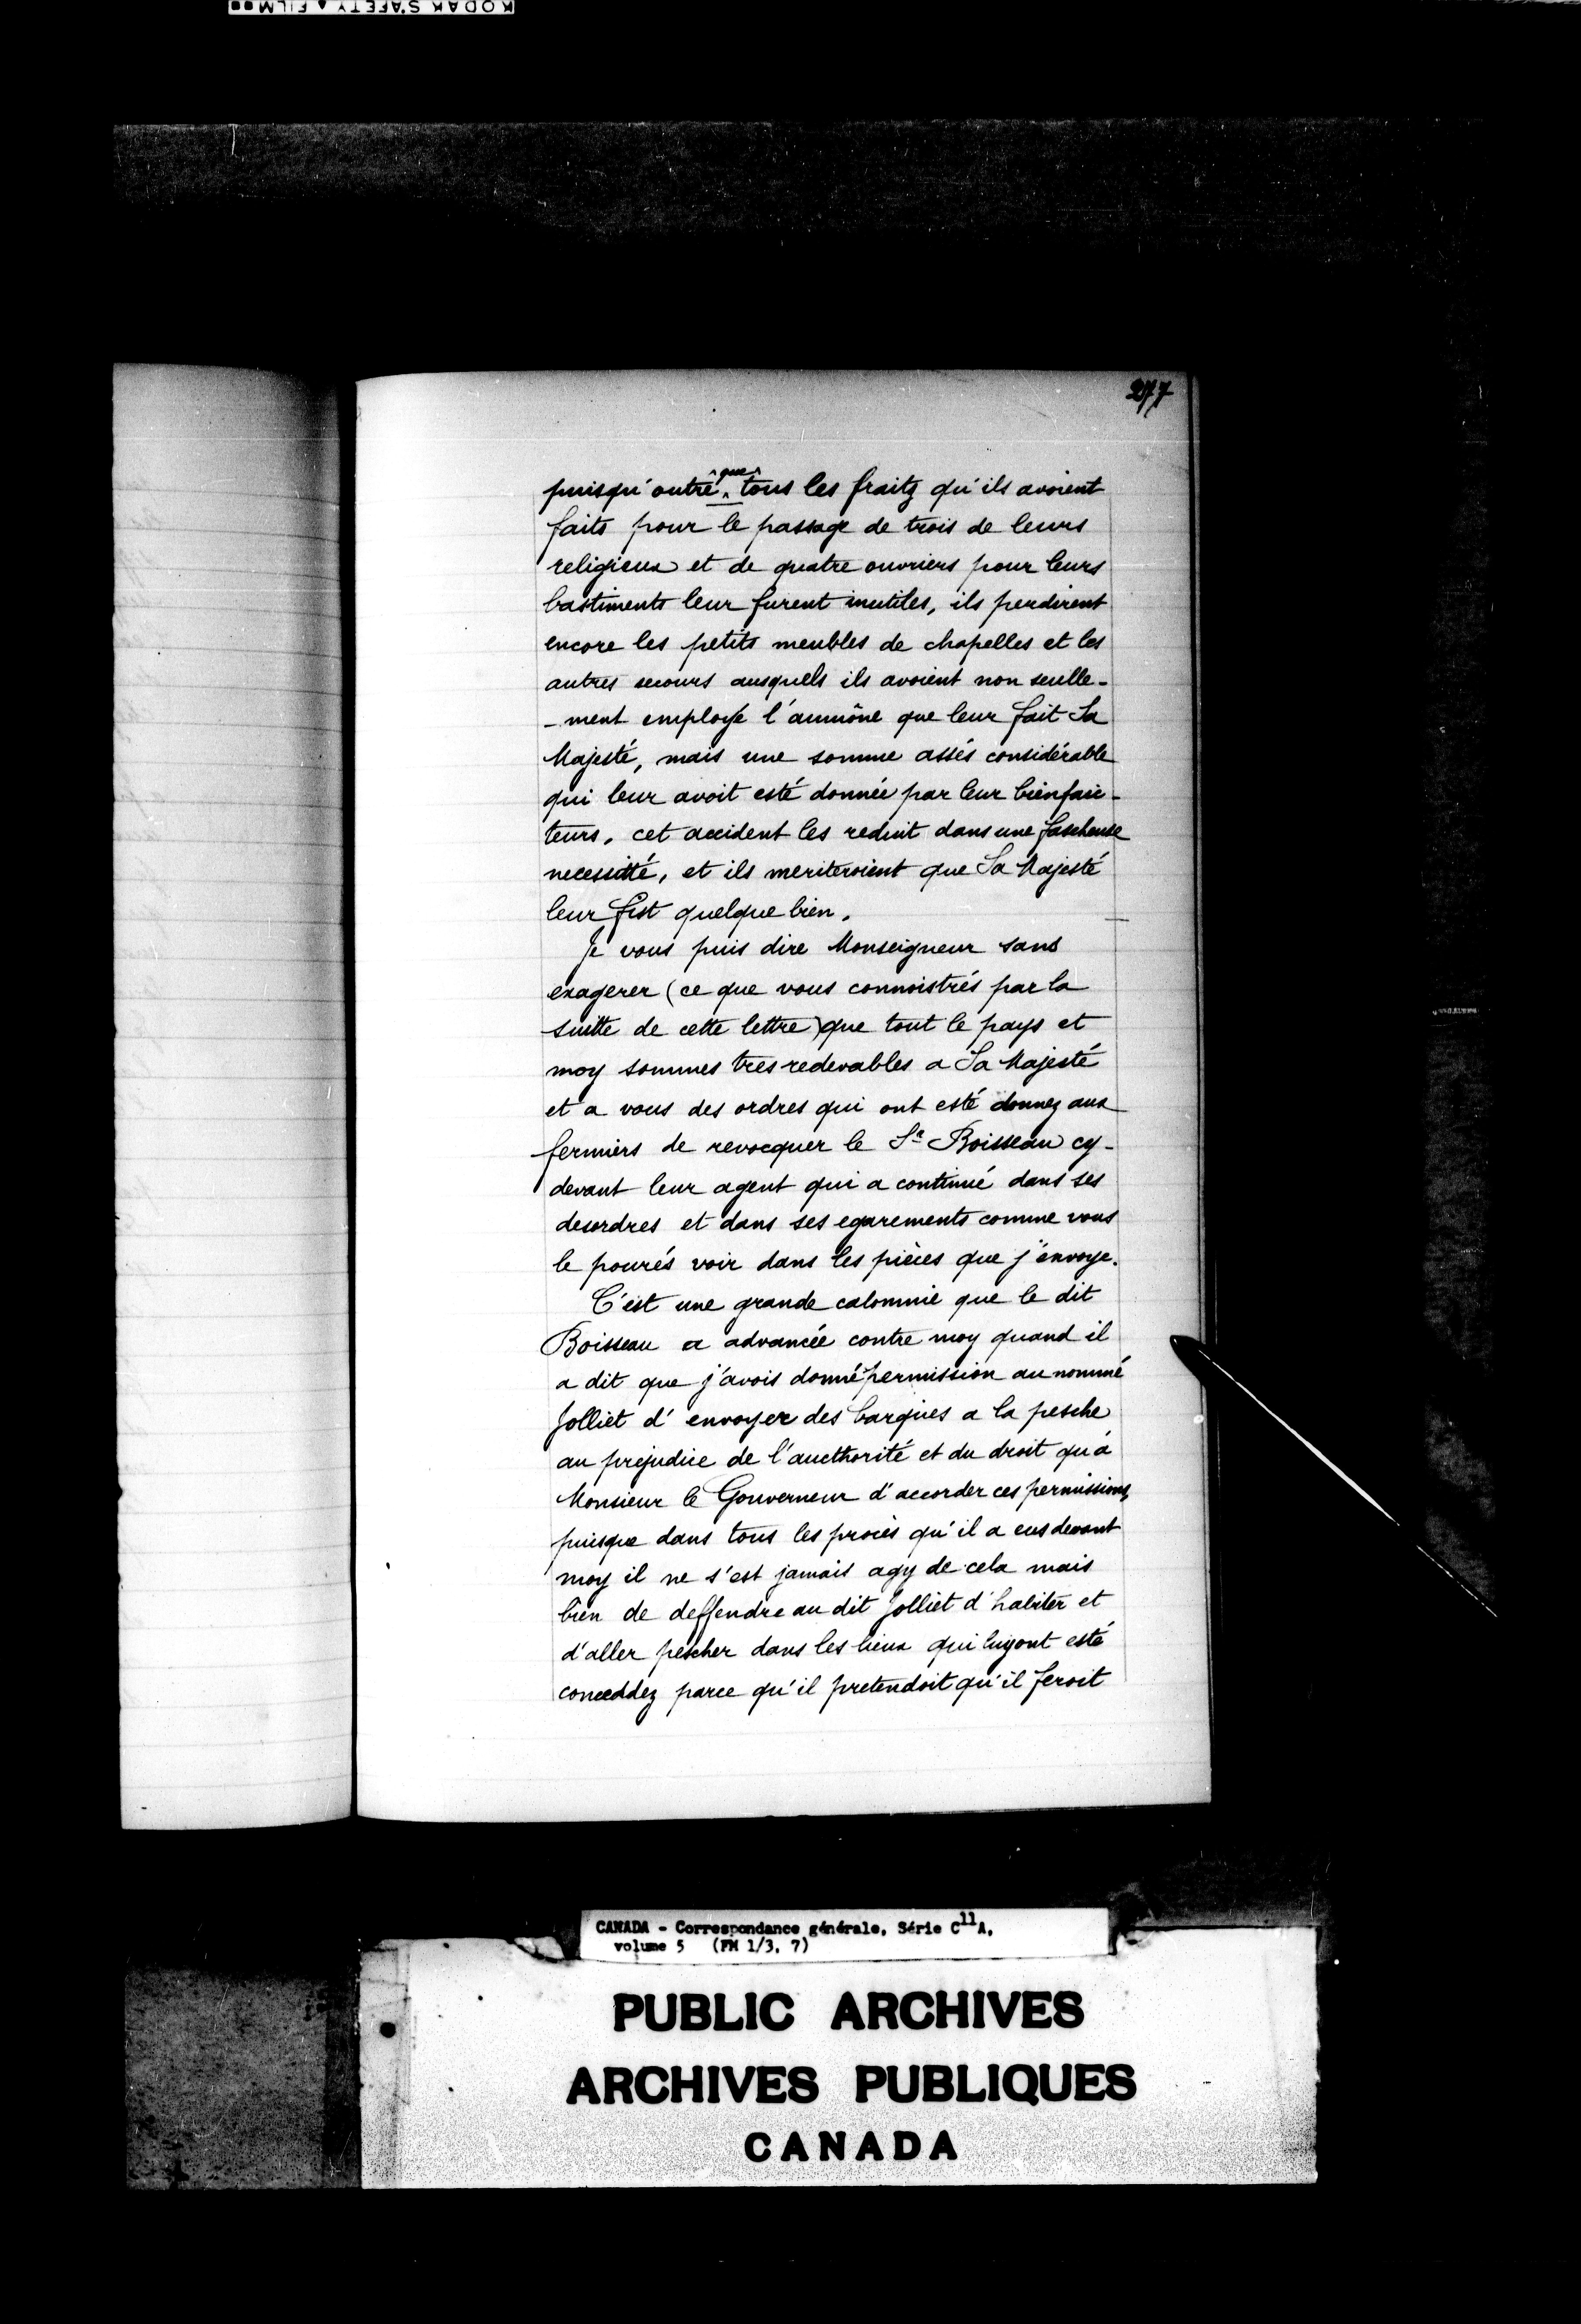 KODAK SAFETY FILM
277
puisqu'outre ^que^ tous les fraitz qu'ils avoient
faits pour le passage de trois de leurs
religieux et de quatre ouvriers pour leurs
bastiments leur furent inutiles, ils perdirent
encore les petits meubles de chapelles et les
autres secours ausquels ils avoient non seulle-
-ment employe l'aumône que leur fait Sa
Majesté, mais une somme assés considérable
qui leur avoit esté donnée par leur bienfaic-
teurs, cet accident les reduit dans une fascheuse
necessitté, et ils meriteroient que Sa Majesté
leur fist quelque bien.
Je vous puis dire Monseigneur sans
exagerer (ce que vous connoistrés par la
suitte de cette lettre) que tout le pays et
moy sommes tres redevables a Sa Majesté
et a vous des ordres qui ont esté donnez aux
fermiers de revocquer le Sr Boisseau cy-
devant leur agent qui a continué dans ses
desordres et dans ses egarements comme vous
le pourés voir dans les pièces que j'envoye.
C'est une grande calomnie que le dit
Boisseau a advancée contre moy quand il
a dit que j'avois donné permission au nommé
Jolliet d'envoyer des barques a la pesche
au prejudice de l'aucthorité et du droit qu'a
Monsieur le Gouverneur d'accorder ces permissions,
puisque dans tous les procès qu'il a eus devant
moy il ne s'est jamais agy de cela mais
bien de deffendre au dit Jolliet d'habiter et
d'aller pescher dans les lieux qui luy ont esté
conceddez parce qu'il pretendoit qu'il feroit
CANADA - Correspondance générale, Série C11A,
volume 5 (FM 1/3, 7)
PUBLIC ARCHIVES
ARCHIVES PUBLIQUES
CANADA